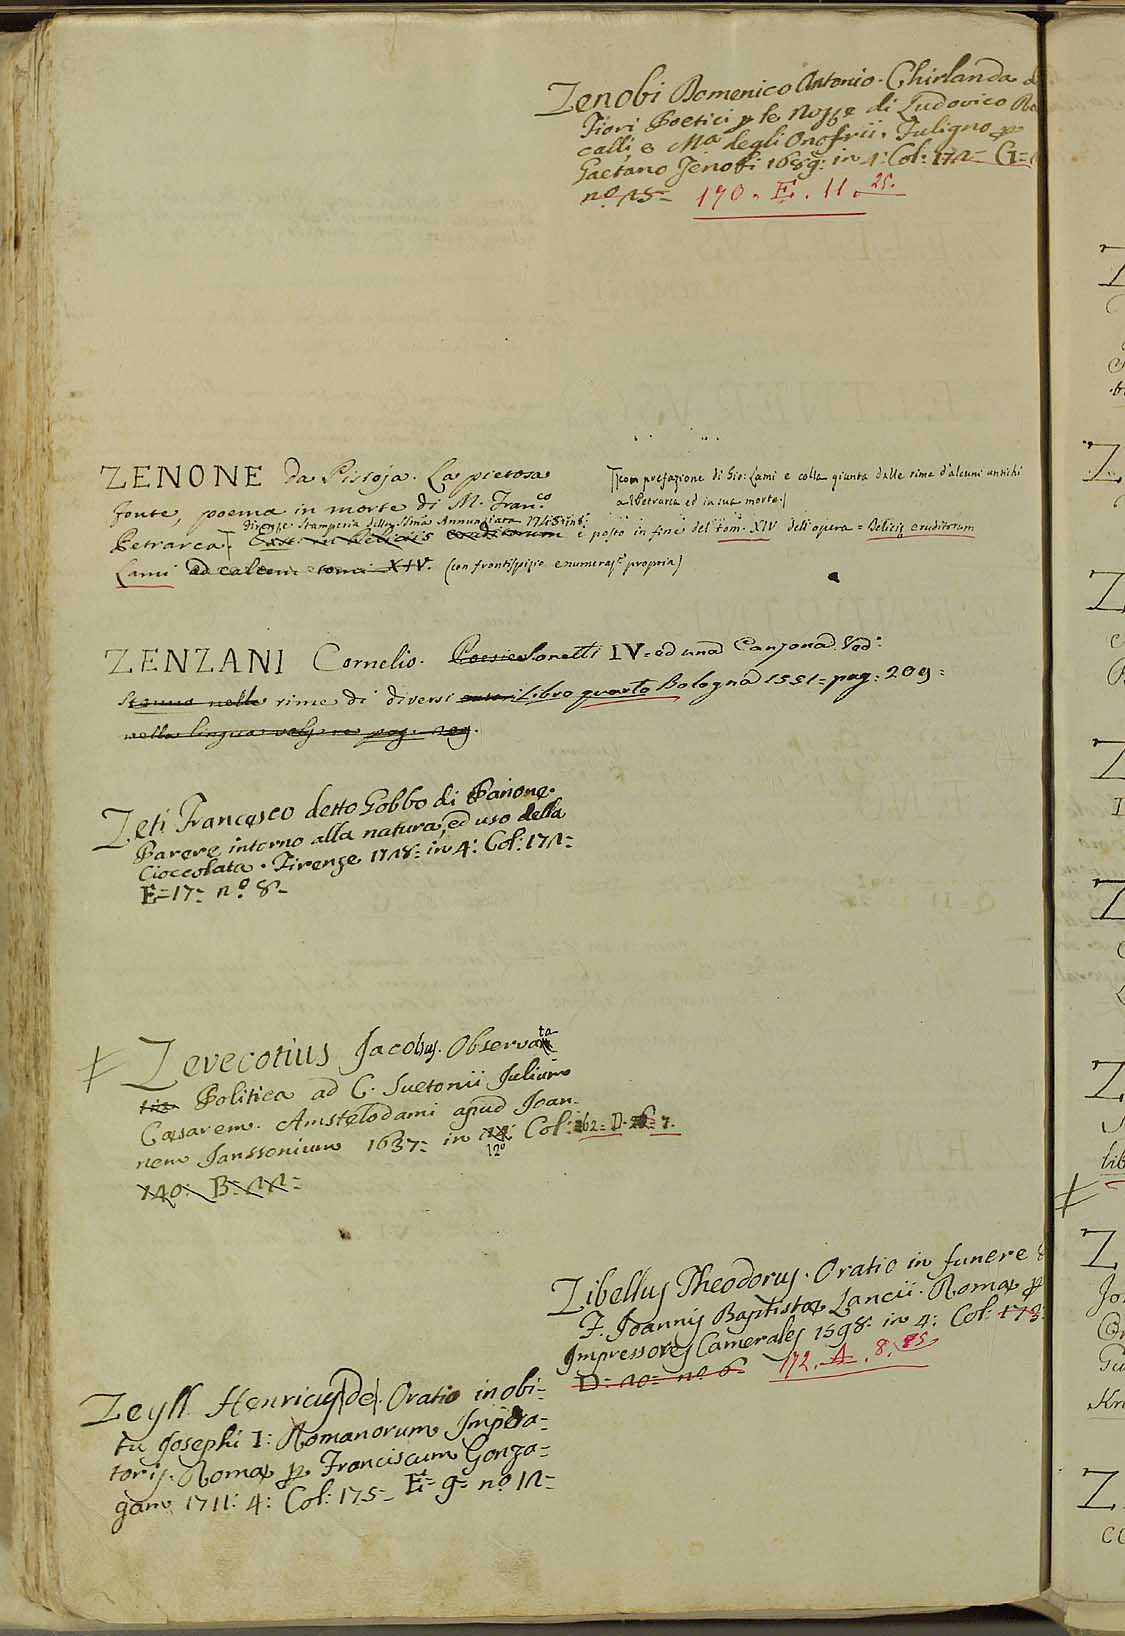 Zenobi Domenico Antonio. Ghirlanda d
Fiori Poetici p le Nozze di Ludovico Ro
calli e Ma degli Onofrii. Fuligno p
Gaetano Zenobi 1689: in 4: Col: 172= G=
no 15= 170. E. 11. 25.
ZENONE da Pistoja. La pietosa
fonte, poema in morte di M. Franco
Petrarca.
con prefazione di Gio: Lami e colla giunta delle rime d'alcuni antichi
al Petrarca ed in sua morte.
Firenze Stamperia della SSma Annunziata 1743 in 8o
Exst. in Deliciis eruditorum è posto in fine del tom. XIV dell'opera = Deliciæ eruditorum
Lami ad calcem tomi XIV. (con frontispizio e numerazne propria)
ZENZANI Cornelio. Poesie Sonetti IV= ed una Canzona. Ved:
Stanno nelle rime di diversi autori Libro quarto Bologna 1551= pag: 209=
nella lingua volgare pag. 209.
Zeti Francesco detto Gobbo di Parione.
Parere intorno alla natura, ed uso della
Cioccolata. Firenze 1728= in 4: Col: 171=
E=17= no. 8=
Zevecotius Jacobus. Observata
tio Politica ad C. Suetonii Julium
Cæsarem. Amstelodami apud Joan-
nem Janssonium 1637= in 12o Col: 162= D. 7.
140: B= 11=
Zibellus Theodorus. Oratio in funere
F. Joannis Baptistæ Lancii. Romæ p
Impressores Camerales 1598= in 4: Col: 173:
D= 10= no. 6= 172. A. 8. 25
Zeyll Henricus (de) Oratio in obi=
tu Josephi I: Romanorum Impera=
toris. Romæ p Franciscum Gonza=
gam 1711: 4: Col: 175= E= 9= no 12=